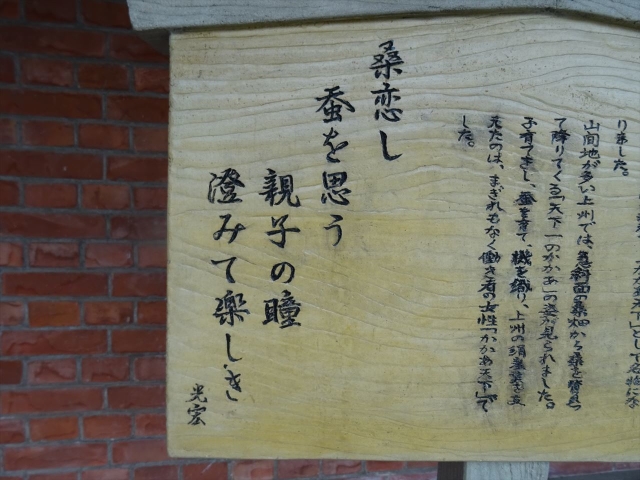 りました。
山間地が多い上州では、急斜面の桑畑から桑を背負っ
て降りてくる「天下一のかかあ」の姿が見られました。
子育てをし、蚕を育て、機を織り、上州の絹産業を支
えたのは、まぎれもなく働き者の女性「かかあ天下」で
した。
桑恋し
蚕を思う
親子の瞳
澄みて楽しき
光宏